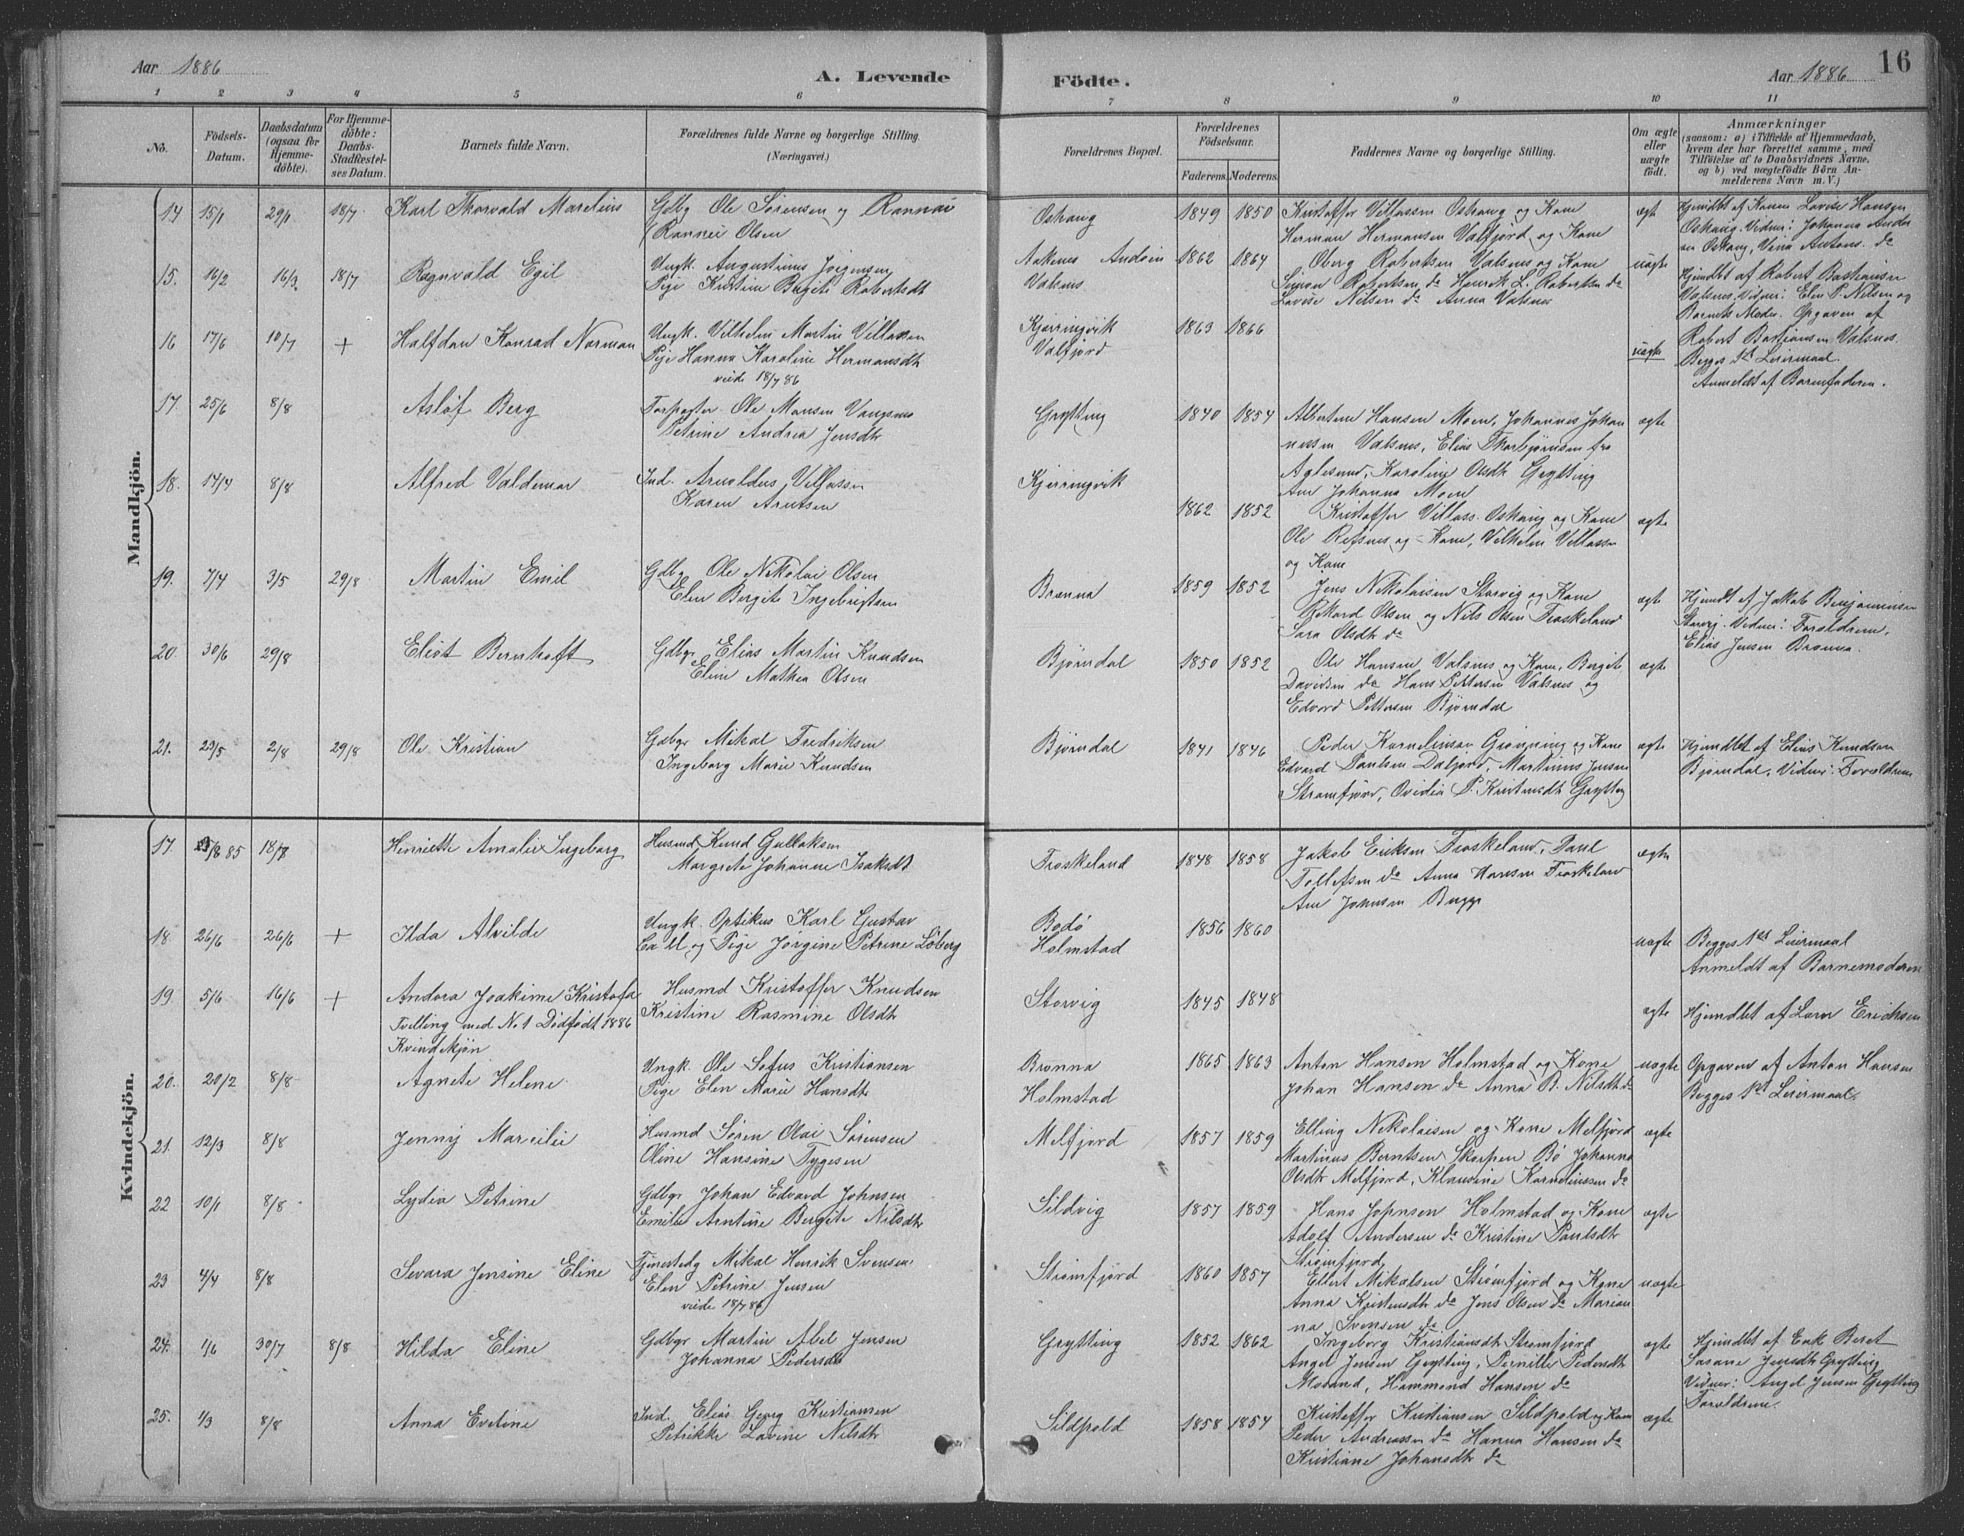 Aar 1886
A. Levende
Födte.
Aar 1886
16
1 2 3 4 5 6 7 8 9 10 11
No.
Födsels-
Datum.
Daabsdatum
(ogsaa for
Hjemme-
döbte).
For Hjemme-
döbte:
Daabs-
Stadfæstel-
ses Datum.
Barnets fulde Navn.
Forældrenes fulde Navne og borgerlige Stilling.
(Næringsvei.)
Forældrenes Bopæl.
Forældrenes
Födselsaar.
Faderens. Moderens.
Faddernes Navne og borgerlige Stilling.
Om ægte
eller
uægte
födt.
Anmærkninger
(saasom: a) i Tilfælde af Hjemmedaab,
hvem der har forrettet samme, med
Tilföielse af to Daabsvidners Navne,
og b) ved uægtefödte Börn An-
melderens Navn m. V.)
Mandkjön.
14 15/1 29/1 18/7 Karl Thorvald Marelius
Gdbg Ole Sørensen og
Olsen
Oshaug
1849 1850
Kristoffer Villassen Oshaug og Kone
Herman Hermansen Valfjord og Kone
ægt
Hjemdbt af Konen Lovise Hansen
Oshaug. Vidner: Johanna Ander
sen Oshaug, Antons. do
15. 16/2 16/3 18/7 Ragnvald Egil
Ungk. Augustinus Jørgensen
Pige Kristine Bergite Robertsdt
Aaknes Andøen
Valsnes
1862 1864
Oberg Robertsen Valsnes og Kone
Simon Robertsen do Henrik L. Robertsen do
Lovise Nilsen do Anna Valsnes
uægte
Hjemdbt af Robert Bastiansen
Valsnes. Vidner: Elen P. Nilsen og
Barnets Moder. Opgaven af
Robert Bastiansen Valsnes.
16 17/6 10/7 + Halfdan Konrad Norman
Ungk. Vilhelm Martin Villassen
Pige Hanna Karoline Hermansdt
viede 18/7 86
Kjerringvik
Valfjord
1863 1866
uægte
Begges 1st Leiermaal.
Anmeldt af Barnefaderen.
17. 25/6 8/8 Asløf Berg
Forpagter Ole Monsen Vangsnes
Petrine Andrea Jensdtr
Grytting
1840 1854
Albertine Hansen Moen, Johannes Johan
nessen Valsnes, Elias Thorbjørnsen fra
Aglesund, Karoline Olsdtr Grytting
Ane Johanna Moen
ægte
18. 17/4 8/8 Alfred Valdemar
Ind. Arnoldus Villassen
Karen Arntsen
Kjerringvik
1862 1852
Kristoffer Villass. Oshaug og Kone
Ole Refsnes og Kone, Vilhelm Villassen
og Kone
ægte
19. 7/4 3/5 29/8 Martin Emil
Gdbg Ole Nikolai Olsen
Elen Bergite Ingebrigtsen
Brønna
1859 1852
Jens Nikolaisen Storvig og Kone
Rikard Olsen og Nils Olsen Froskeland
Sara Olsdtr do
ægte
Hjemdt af Jakob Benjaminsen
Storvig. Vidner: Forældrene.
Elias Jensen Brønna.
20. 30/6 29/8 Eliot Bernhoft
Gdbgr Elias Martin Knudsen
Eline Mathea Olsen
Bjørndal
1850 1852
Ole Hansen Valsnes og Kone, Bergit
Davidsen do Hans Pettersen Valsnes og
Edvard Pettersen Bjørndal
ægte
21. 23/5 2/8 29/8 Ole Kristian
Gdbgr Mikal Fredriksen
Ingeborg Marie Knudsen
Bjørndal
1841 1846
Peder Korneliusen Grønning og Kone
Edvard Paulsen Daljord, Martinus Jensen
Strømfjord, Ovedia P. Kristensdtr Grytting
ægte
Hjemdbt af Elias Knudsen
Bjørndal. Vidner: Forældrene
Kvindekjön.
17. 85 18/7 Henriette Amalie Ingeborg
Husmd Knud Gullaksen
Margrete Johanne Isaksdt
Froskeland
1848 1858
Jakob Eriksen Froskeland, Paul
Tollefsen do Anna Hansen Froskeland
Ane Johnsen Bugge
ægte
18. 26/6 26/6 + Ilda Alvilde
Ungk. Optikus Karl Gustav
og Pige Jørgine Petrine Løberg
Bodø
Holmstad
1856 1860
uægte
Begges 1ste Leiermaal
Anmeldt af Barnemoderen
19 5/6 16/6 + Andora Joakime Kristofa
Tvelling med No 1 Dødfødt 1886
Kvindekjøn
Husmd Kristoffer Knudsen
Kristine Rasmine Olsdtr
Storvig
1845 1848
ægte
Hjemdbt af Lorn Erichsen
20. 20/2 8/8 Agnete Helene
Ungk. Ole Sofus Kristiansen
Pige Elen Marie Hansdtr
Brønna
Holmstad
1865 1863
Anton Hansen Holmstad og Kone
Johan Hansen do Anna B. Nilsdtr do
uægte
Opgaven af Anton Hansen
Begges 1st Leiermaal.
21. 12/3 8/8 Jenny Marcilie
Husmd Søren Olai Sørensen
Oline Hansine Tygesen
Melfjord
1857 1859
Elling Nikolaisen og Kone Melfjord
Martinus Berntsen Skarpen Bø Johanna
Olsdtr Melfjord, Klaudine Korneliussen do
ægte
22 10/1 8/8 Lydia Petrine
Gdbgr Johan Edvard Johnsen
Emilie Arntine Bergite Nilsdtr
Sildvig
1857 1859
Hans Johnsen Holmstad og Kone
Adolf Andersen do Kristine Paulsdtr
Strømfjord
ægte
23 4/4 8/8 Sevara Jensine Eline
Tjenestedg Mikal Henrik Svensen
Elen Petrine Jensen
viede 18/7 86
Strømfjord
1860 1857
Ellert Mikalsen Strømfjord og Kone
Anna Kristensdtr do Jens Olsen do Marian
na Svensen do
uægte
24. 1/6 30/7 8/8 Hilda Eline
Gdbgr Martin Abel Jensen
Johanna Pedersdt
Grytting
1852 1862
Ingeborg Kristiansdtr Strømfjord
Angel Jensen Grytting, Pernille Pedersdtr
Hammond Hansen do
ægte
Hjemdbt af Enk Beret
Susane Jensdtr Grytting
Vidner: Angel Jensen Grytting
Forældrene
25. 1/3 8/8 Anna Eveline
Ind. Elias Georg Kristiansen
Petrikke Lavine Nilsdtr
Sildpold
1858 1854
Kristoffer Kristiansen Sildpold og Kone
Peder Andreassen do Hanna Hansen do
Kristiane Johansdtr do
ægte